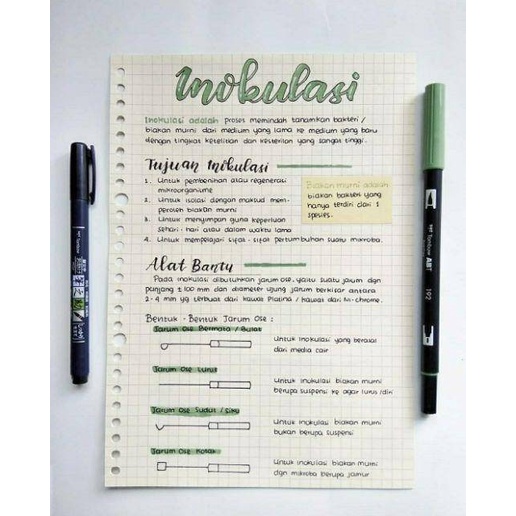 Inokulasi
Inokulasi adalah proses memindah tanamkan bakteri /
biakan murni dari medium yang lama ke medium yang baru
dengan tingkat ketelitian dan kesterilan yang sangat tinggi.
Tujuan Inokulasi
1. Untuk pembenihan atau regenerasi
mikroorganisme
2. Untuk isolasi dengan maksud mem-
peroleh biakan murni
3. Untuk menyimpan guna keperluan
sehari - hari atau dalam waktu lama
4. Untuk mempelajari sifat - sifat pertumbuhan suatu mikroba.
Biakan murni adalah
biakan bakteri yang
hanya terdiri dari 1
spesies.
Alat Bantu
Pada inokulasi dibutuhkan jarum ose, yaitu suatu jarum dgn
panjang ± 100 mm dan diameter ujung jarum berkisar antara
2 - 4 mm yg terbuat dari kawat Platina / kawat dari Ni-chrome.
Bentuk - Bentuk Jarum Ose :
Jarum Ose Bermata / Bulat
Untuk inokulasi yang berasal
dari media cair
Jarum Ose Lurus
Untuk inokulasi biakan murni
berupa suspensi ke agar lurus /
Jarum Ose Sudut / Siku
Untuk inokulasi biakan murni
bukan berupa suspensi
Jarum Ose Kotak
Untuk inokulasi biakan murni
dgn mikroba berupa jamur
Tombow
ABT
192